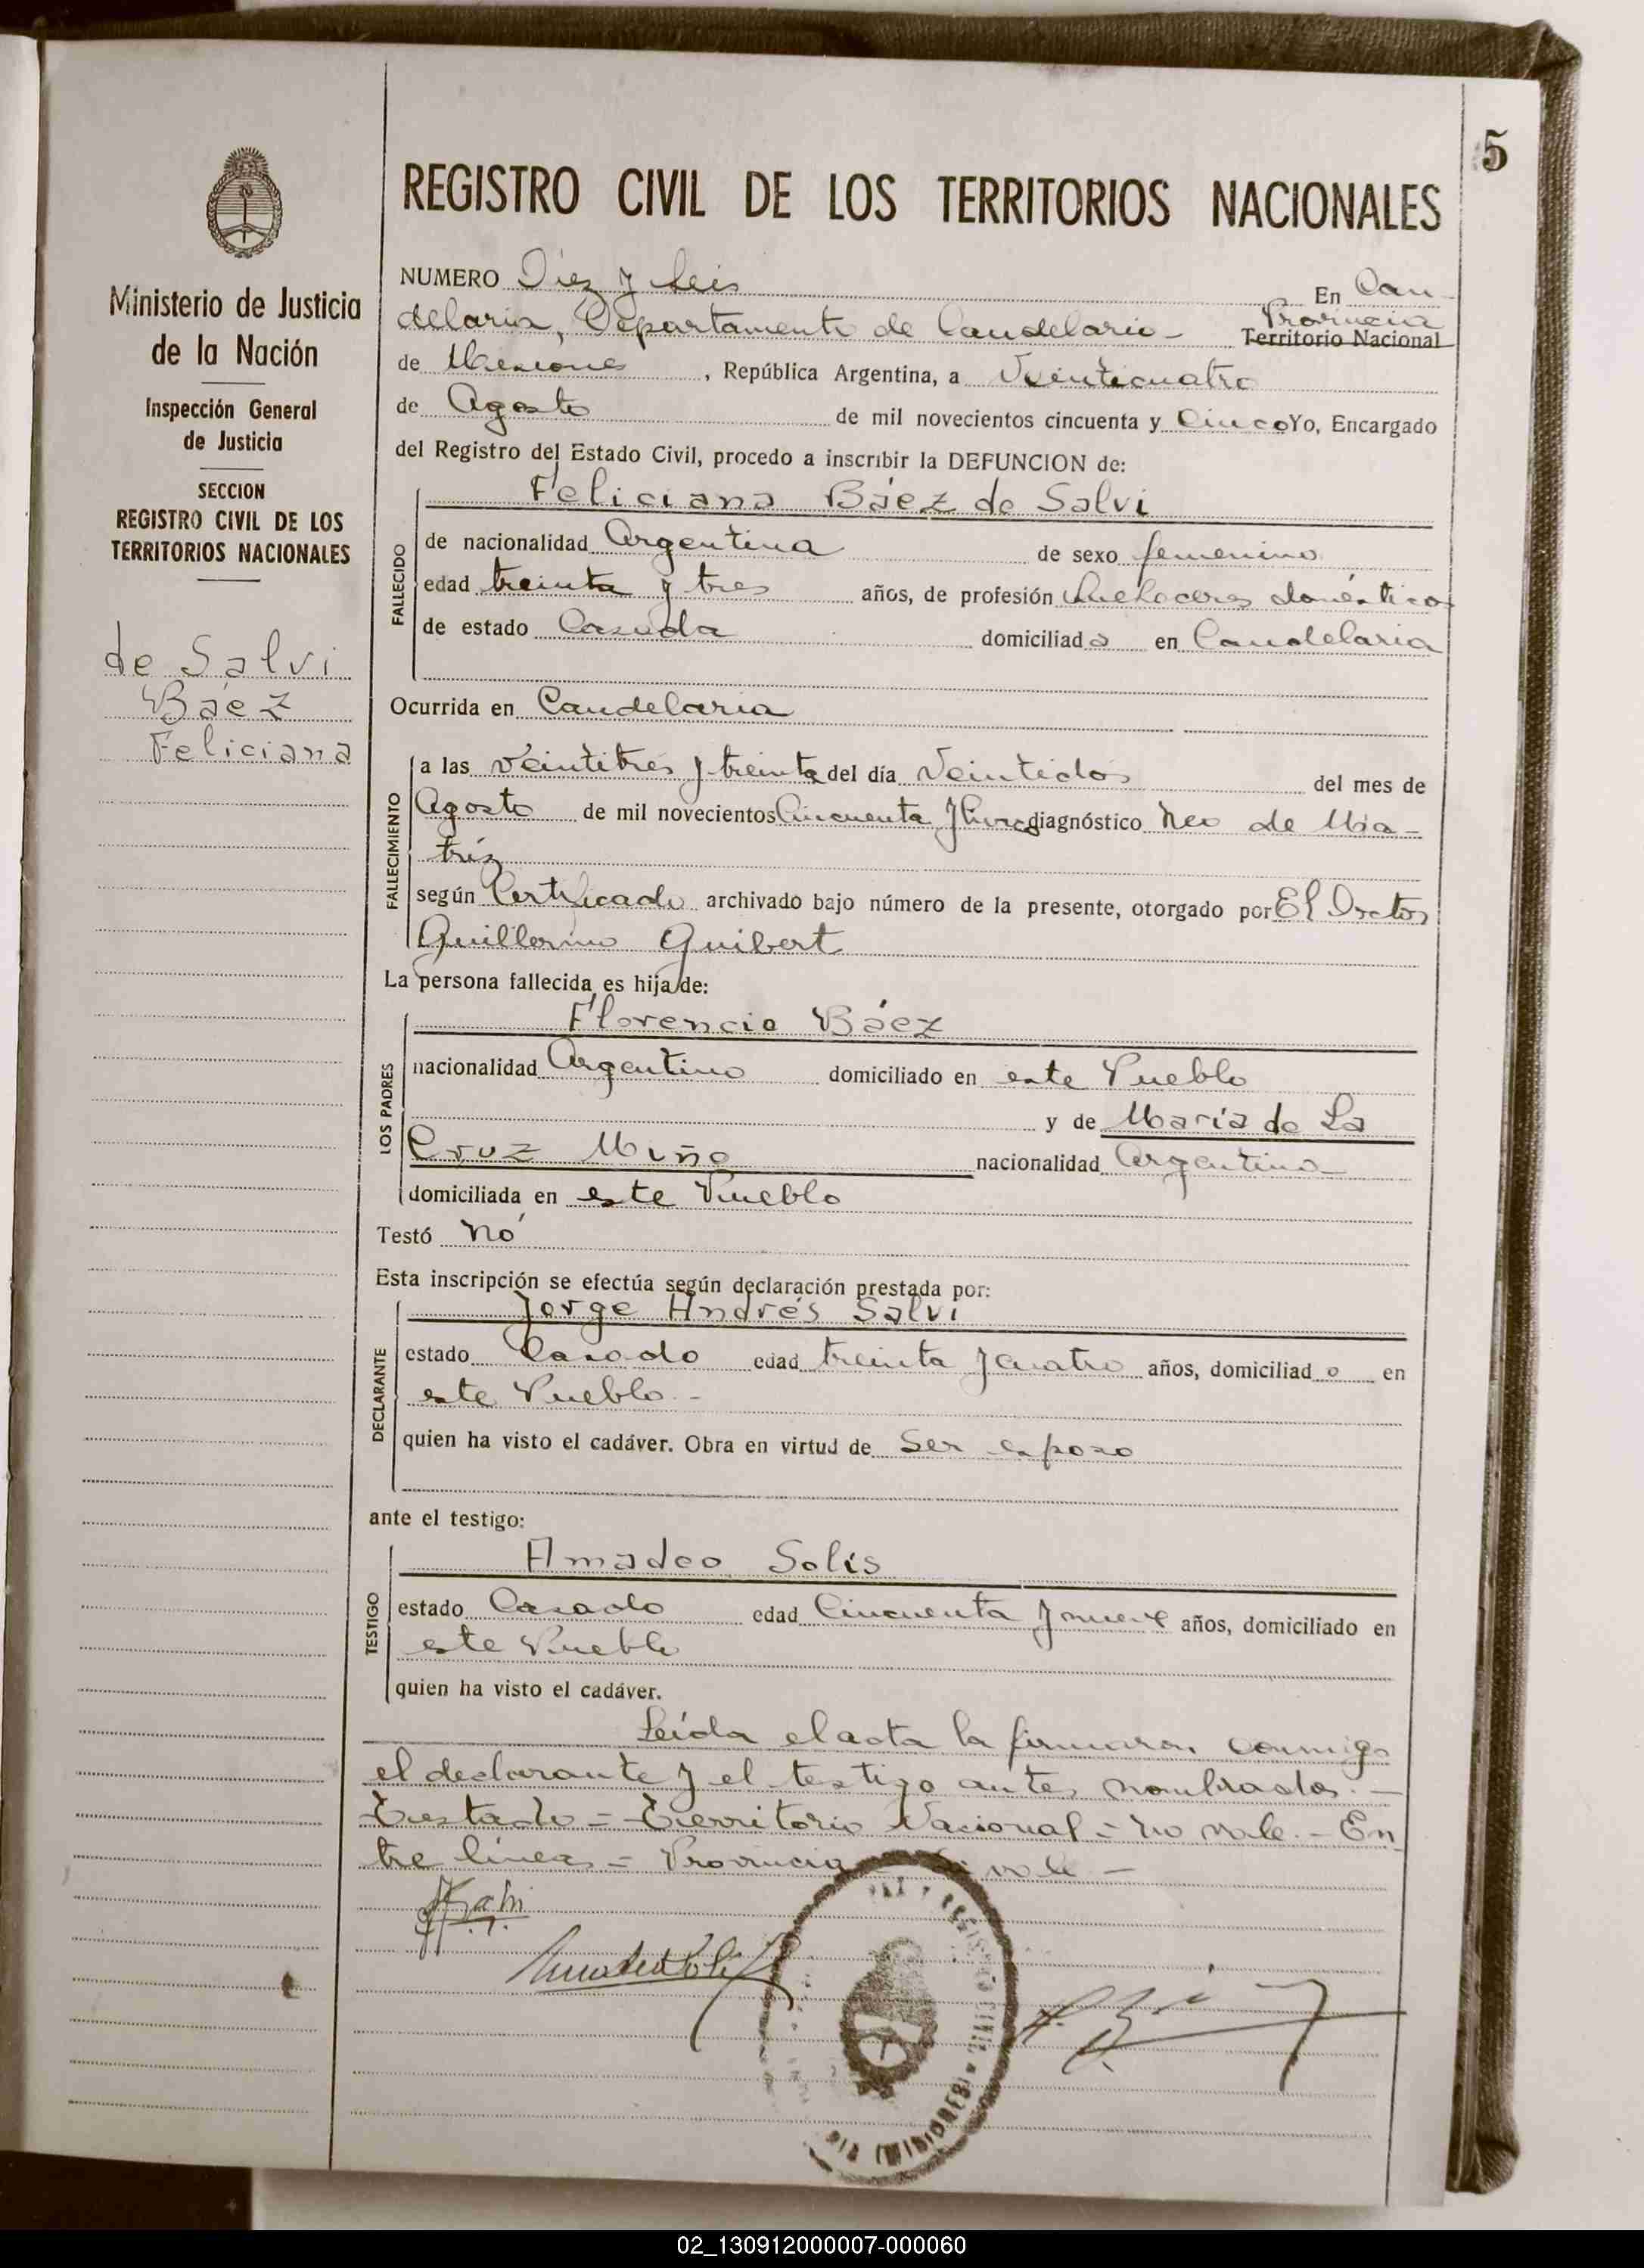 5
REGISTRO CIVIL DE LOS TERRITORIOS NACIONALES
Ministerio de Justicia
de la Nación
Inspección General
de Justicia
SECCION
REGISTRO CIVIL DE LOS
TERRITORIOS NACIONALES
de Salvi
Báez
Feliciana
NUMERO Diez y seis En Can
delaria, Departamento de Candelaria - Provincia
Territorio Nacional
de Misiones, República Argentina, a Veinticuatro
de Agosto de mil novecientos cincuenta y Cinco Yo, Encargado
del Registro del Estado Civil, procedo a inscribir la DEFUNCION de:
Feliciana Báez de Salvi
FALLECIDO
de nacionalidad Argentina de sexo femenino
edad treinta y tres años, de profesión Quehaceres domésticos
de estado Casada domiciliada en Candelaria
Ocurrida en Candelaria
FALLECIMIENTO
a las veintitrés y treinta del día Veintidos del mes de
Agosto de mil novecientos Cincuenta y Cinco diagnóstico Neo de Ma-
tríz
según Certificado archivado bajo número de la presente, otorgado por El Doctor
Guillermo Guibert
La persona fallecida es hija de:
Florencio Báez
LOS PADRES
nacionalidad Argentino domiciliado en este Pueblo
y de María de La
Cruz Miño nacionalidad Argentina
domiciliada en este Pueblo
Testó Nó
Esta inscripción se efectúa según declaración prestada por:
Jorge Andrés Salvi
DECLARANTE
estado Casado edad treinta y cuatro años, domiciliado en
este Pueblo -
quien ha visto el cadáver. Obra en virtud de Ser esposo
ante el testigo:
Amadeo Solís
TESTIGO
estado Casado edad Cincuenta y nueve años, domiciliado en
este Pueblo
quien ha visto el cadáver.
Leída el acta la firmaron conmigo
el declarante y el testigo antes nombrados -
Testado = Territorio Nacional = no vale. - En
tre líneas = Provincia = Si vale -
REGISTRO CIVIL
(MISIONES)
02_130912000007-000060